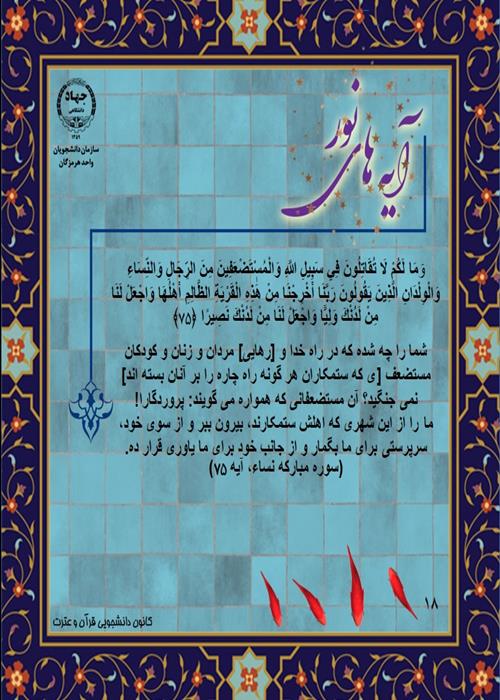 جهاد
دانشگاهی
۱۳۵۹
سازمان دانشجویان
واحد هرمزگان
آیه های نور
وَ مَا لَكُمْ لَا تُقَاتِلُونَ فِي سَبِيلِ اللَّهِ وَالْمُسْتَضْعَفِينَ مِنَ الرِّجَالِ وَالنِّسَاءِ
وَالْوِلْدَانِ الَّذِينَ يَقُولُونَ رَبَّنَا أَخْرِجْنَا مِنْ هَٰذِهِ الْقَرْيَةِ الظَّالِمِ أَهْلُهَا وَاجْعَلْ لَنَا
مِنْ لَدُنْكَ وَلِيًّا وَاجْعَلْ لَنَا مِنْ لَدُنْكَ نَصِيرًا ﴿۷۵﴾
شما را چه شده که در راه خدا و [رهایی] مردان و زنان و کودکان
مستضعف [ی که ستمکاران هر گونه راه چاره را بر آنان بسته اند]
نمی جنگید؟ آن مستضعفانی که همواره می گویند: پروردگارا!
ما را از این شهری که اهلش ستمکارند، بیرون ببر و از سوی خود،
سرپرستی برای ما بگمار و از جانب خود برای ما یاوری قرار ده.
(سوره مبارکه نساء، آیه ۷۵)
۱۸
کانون دانشجویی قرآن و عترت